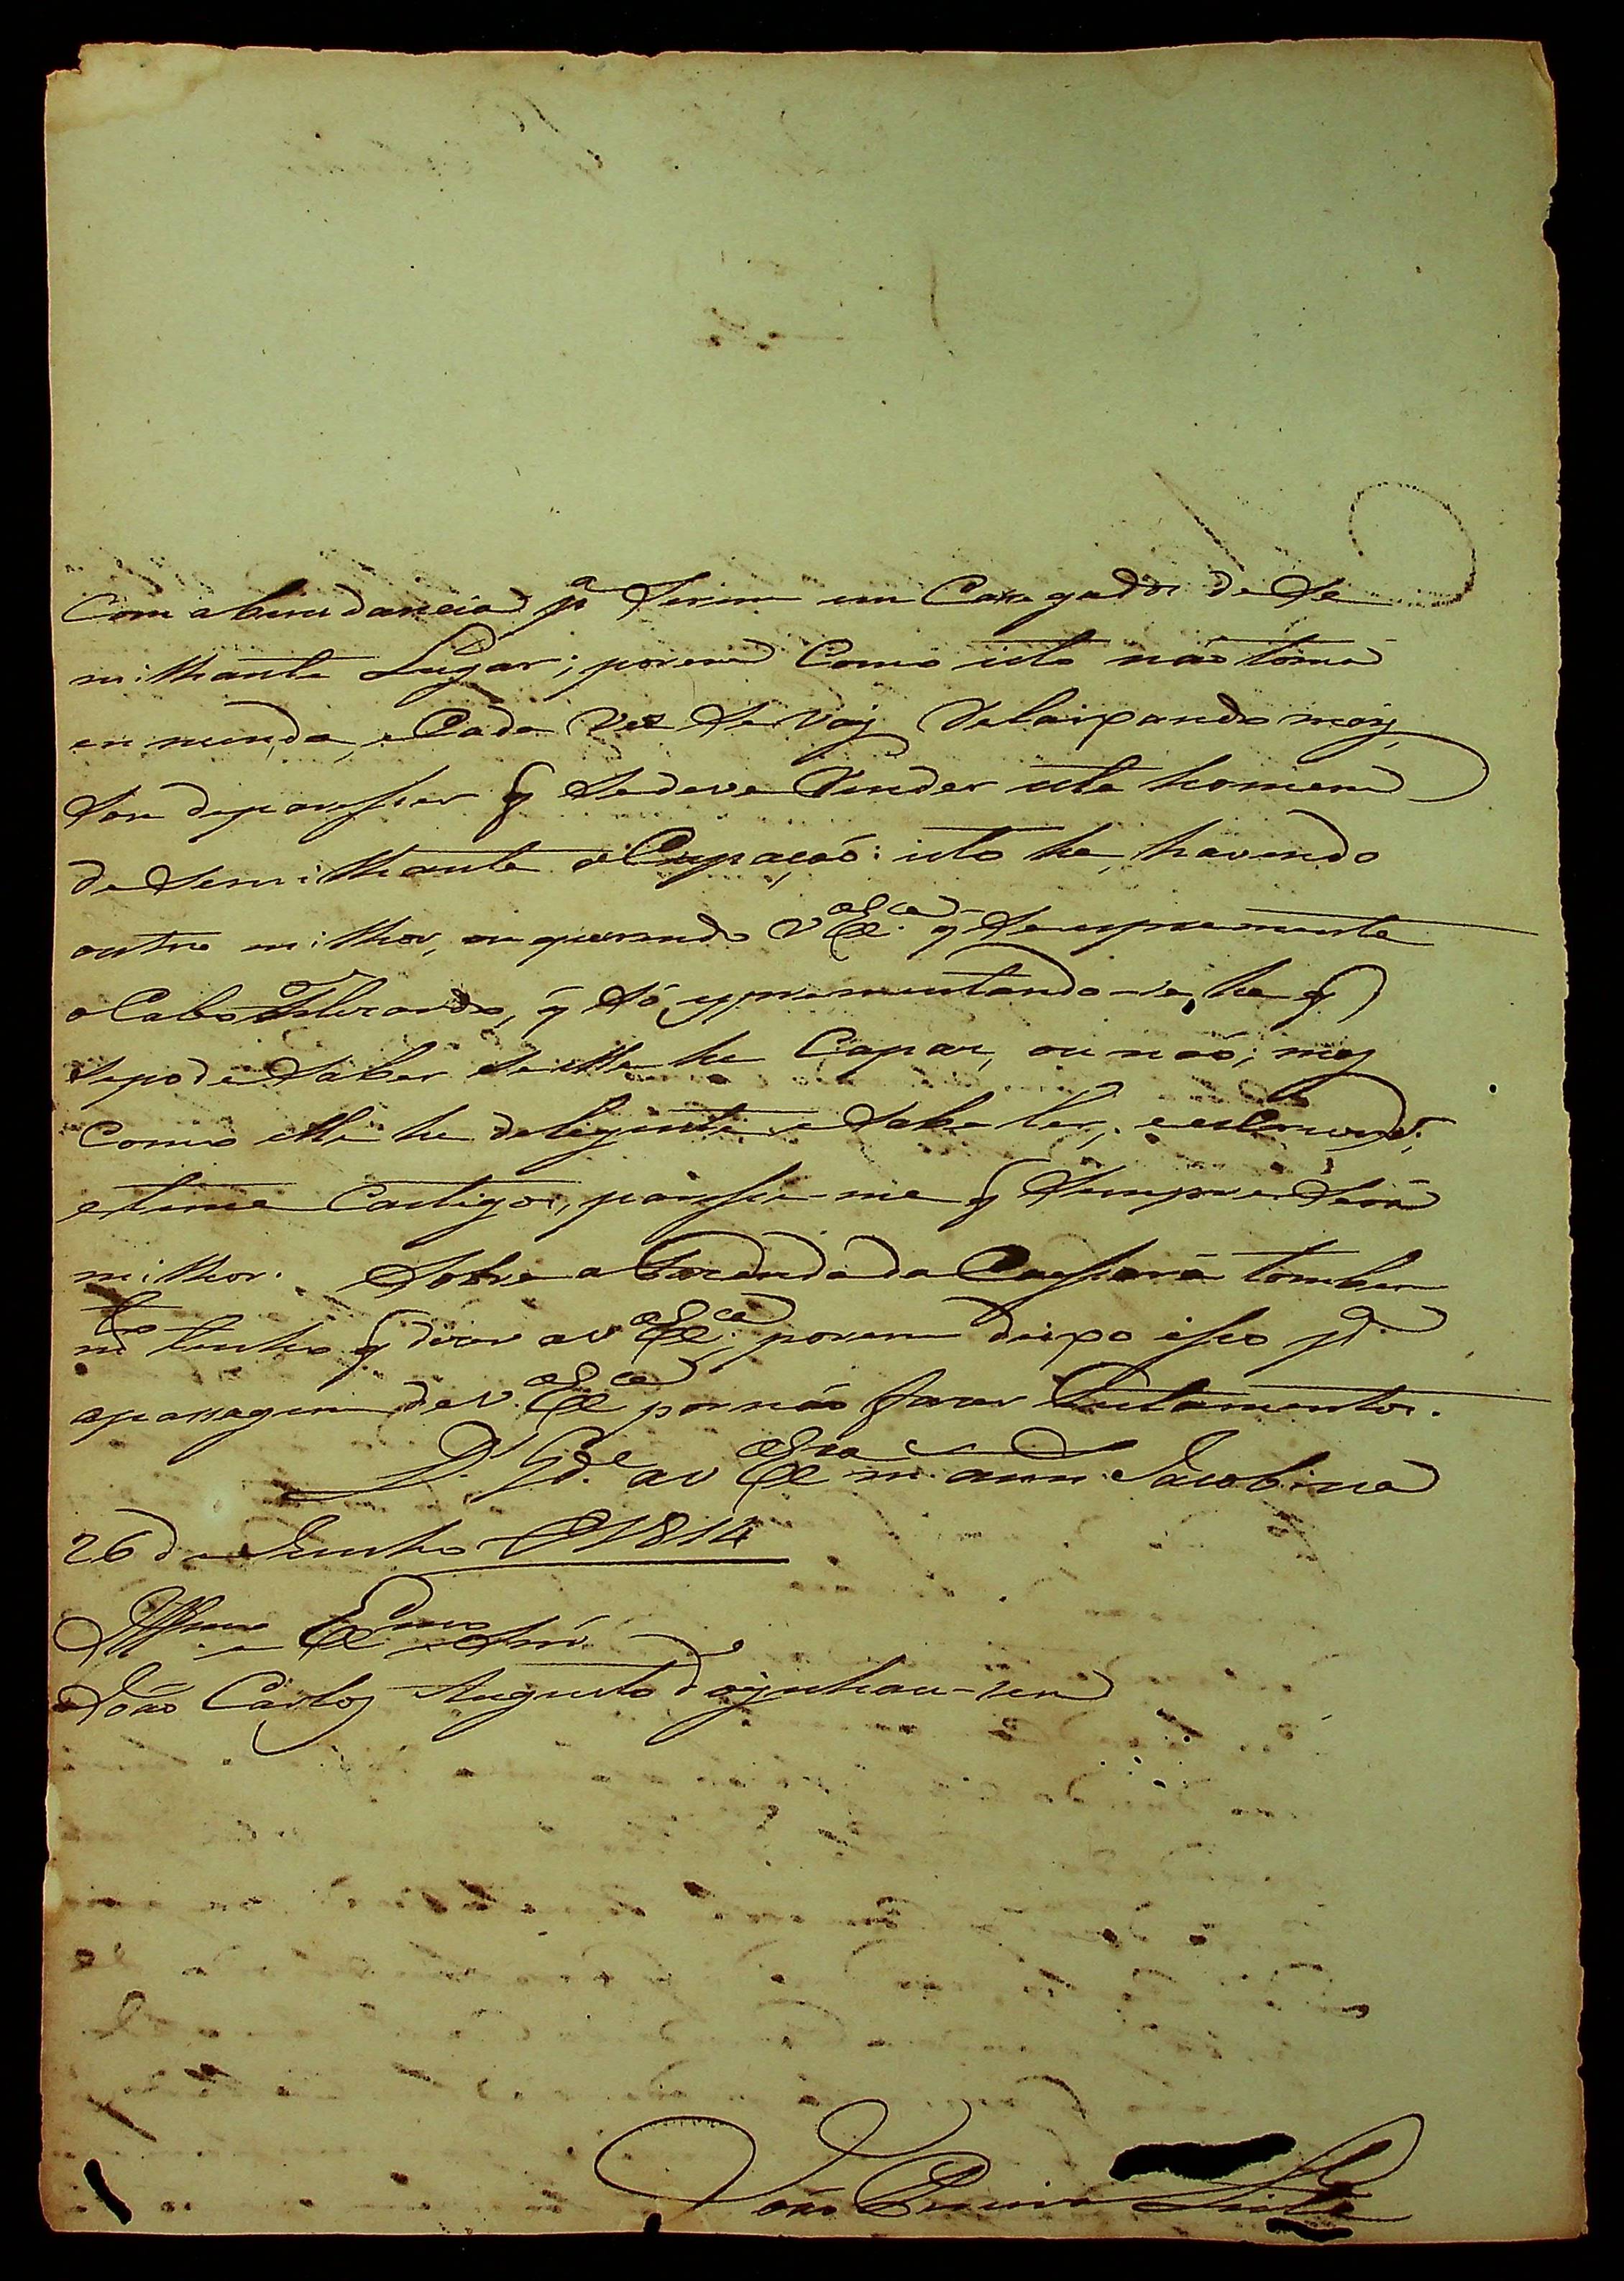 Com abundancia pª hum en Carregador de Se
milhante Lugar; porem Como isto não toma
en menda, e Cada Vez Se vay relaixando mais,
Sou de paresser q̃ Sedeve render este homem
de Semilhante oCupação: isto he, havendo
outro milhor, ou querendo V Exª. q̃ Se expremente
o Cabo , q̃ Só exprementando-se, he q̃
Sepode Saber Se elle he Capax, ou não; mas
Como elle he deligente e Sabe ler, e escrever,
e teme Castigos, paresse-me q̃ Sempre Será
milhor. Sobre a Fazenda da Caissara tambem
tenho q̃ dizer a V Exª; porem deixo isso pª
a passagem de V. Exª por não fazer .
Dˢ Gᵈᵉ a V Exª m. ann. Jacobina
26 de Junho de 1814
Illmo e Exmo Snr.
João Carlos Augusto d'Oÿnhau-sen
João Pereira Leite